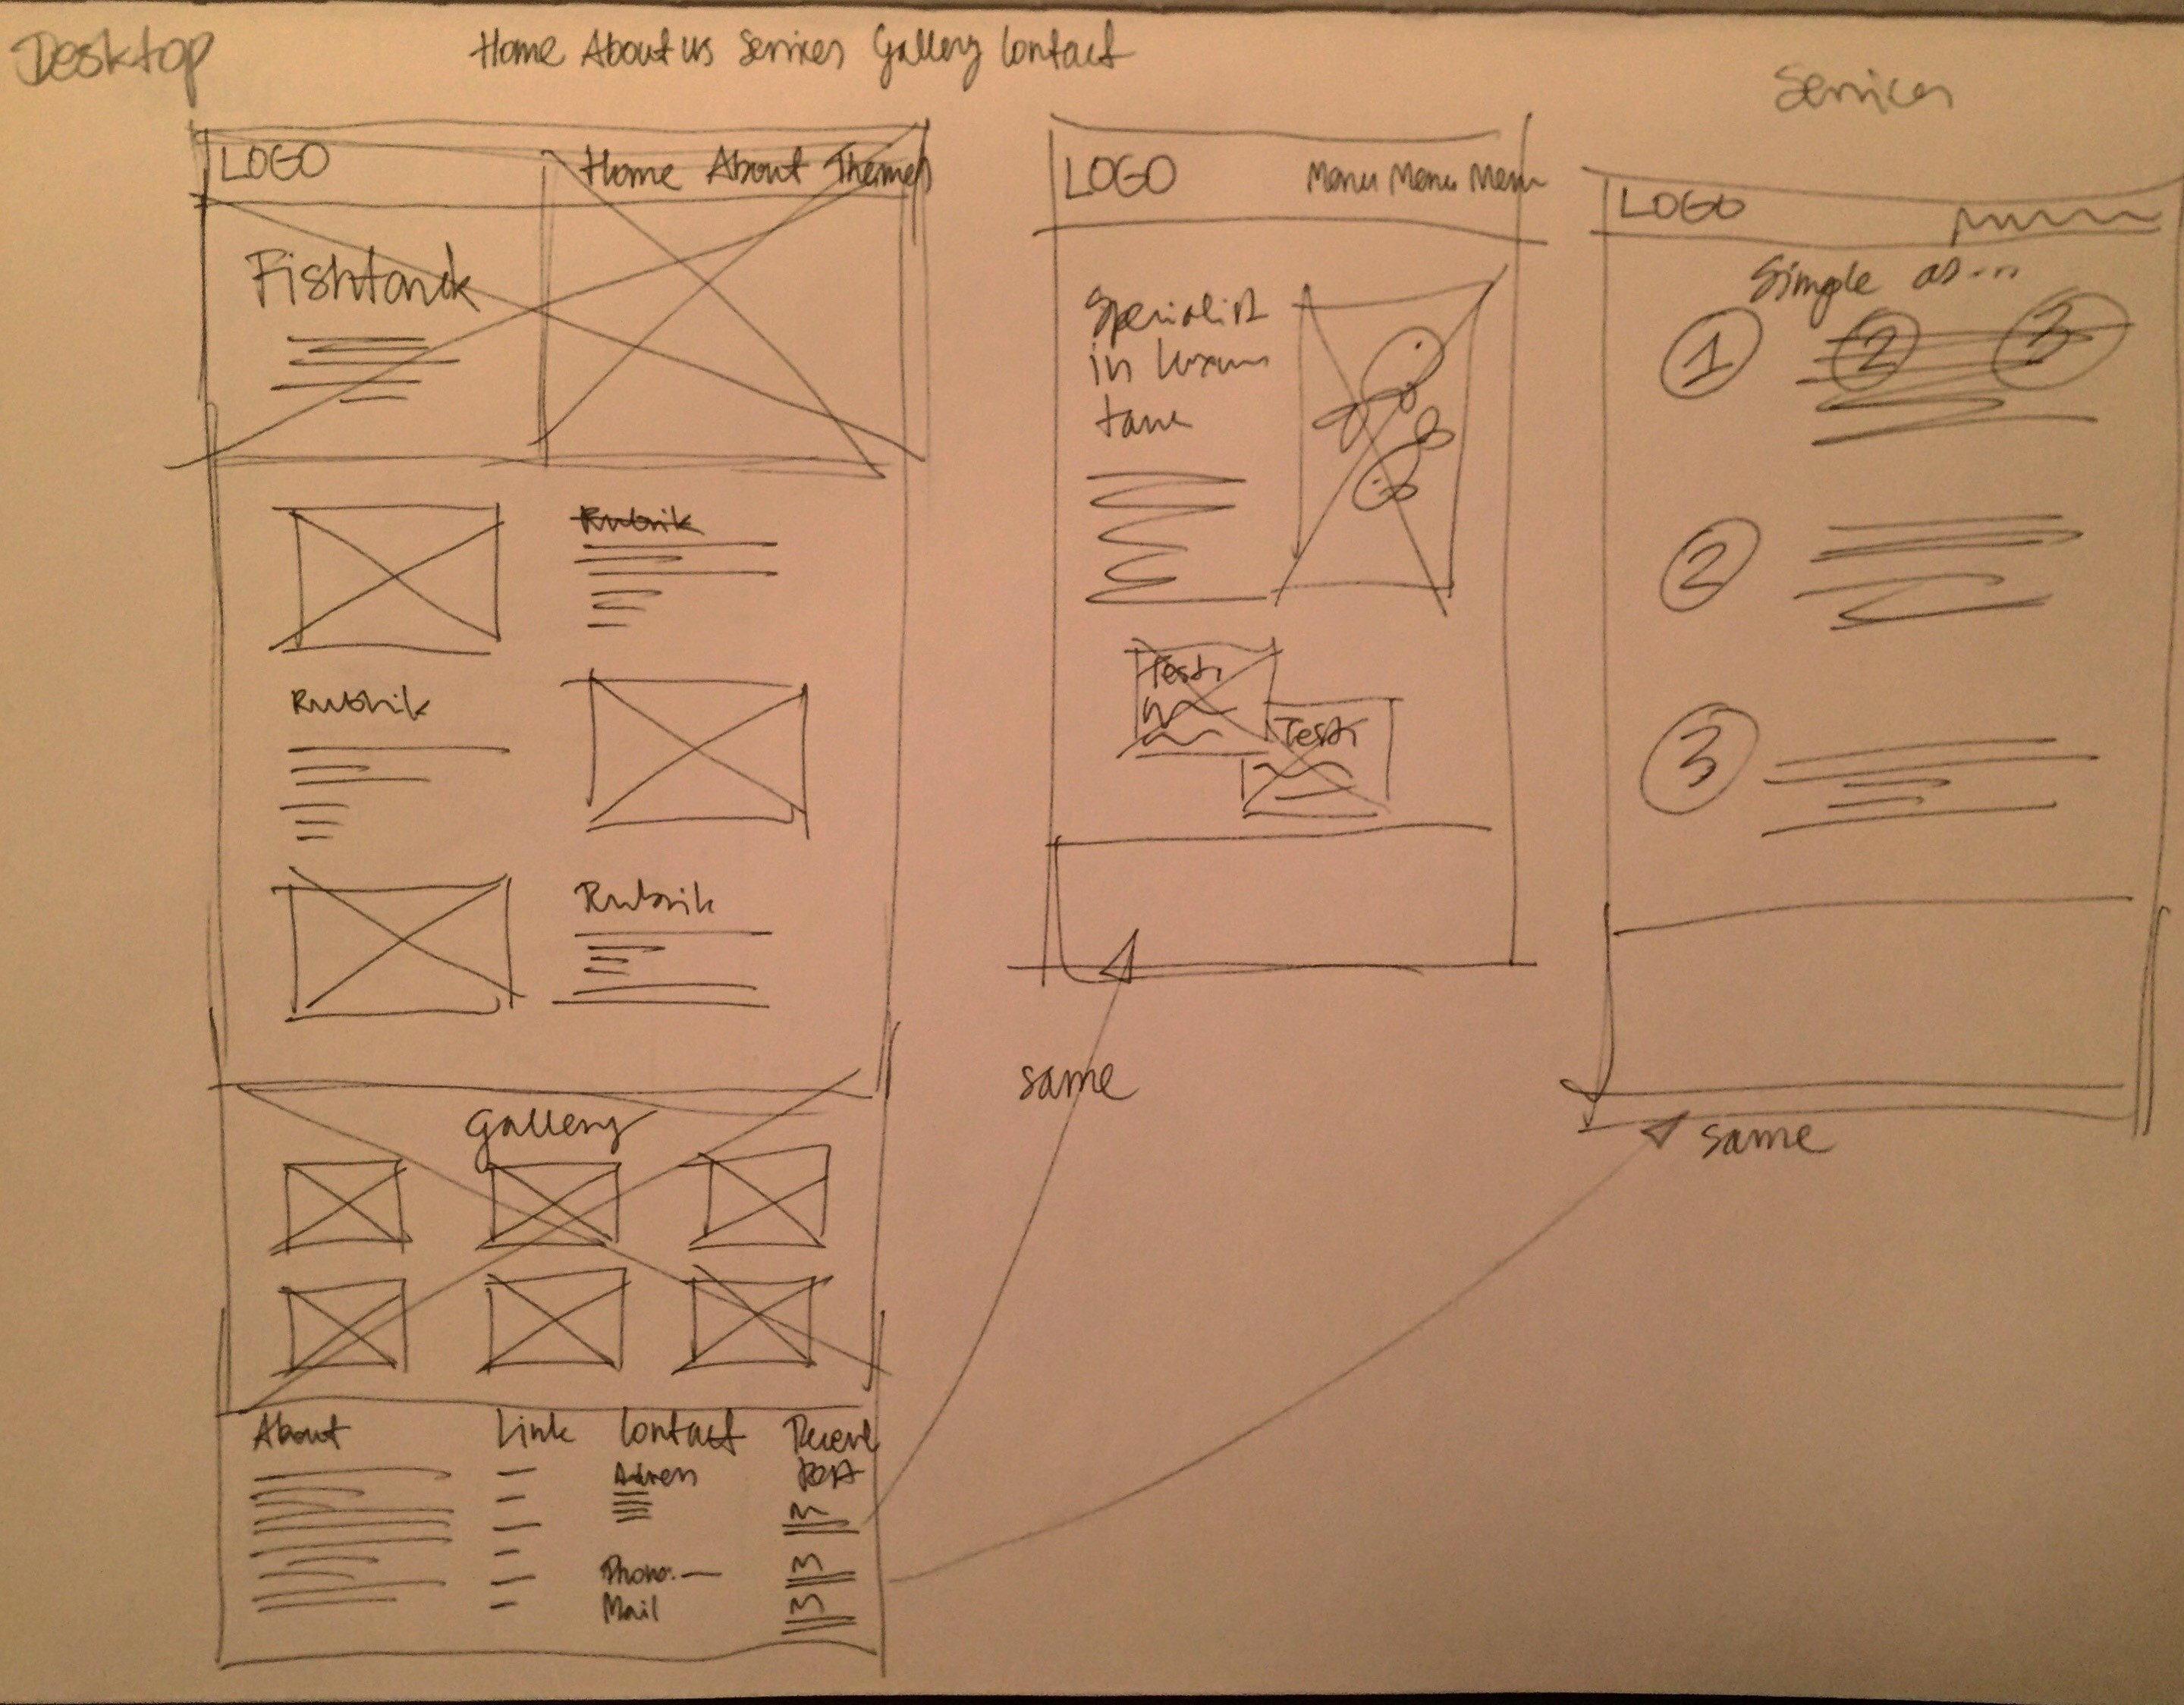 Desktop
Home About us Services Gallery Contact
LOGO
Home About Themes
Fishtank
Rubrik
Rubrik
Rubrik
Gallery
About
Link
Contact
Adress
Phone:
Mail
LOGO
Menu Menu Menu
Specialist
in luxury
Testi
Testi
same
Services
LOGO
Simple as...
1
2
3
2
3
same